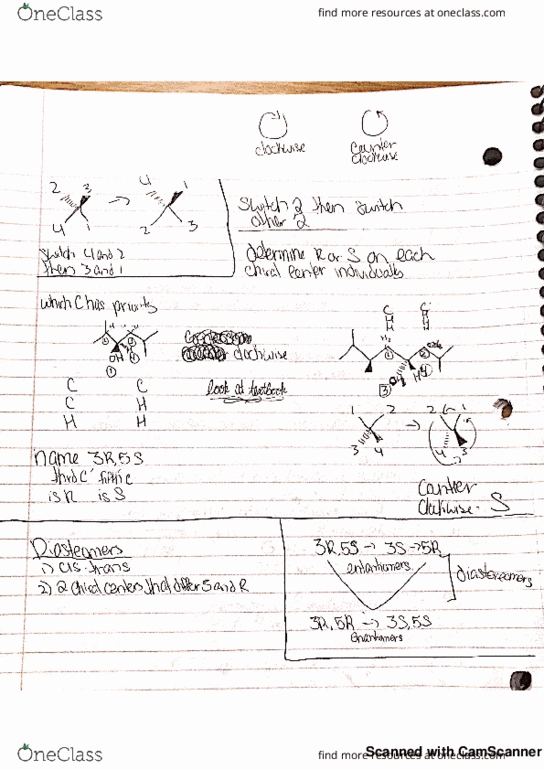 OneClass
find more resources at oneclass.com
clockwise
Counter
clockwise
2 3
4 1
4 1
2 3
Switch 4 and 2
then 3 and 1
Switch 2 then switch
other 2
determine R or S on each
chiral center individually
which C has priority
clockwise
look at textbook
OH
C C
C H
H H
C C
H H
H H
1 2
3 4
2 1
4 3
name 3R,5S
third C fifth C
is R is S
Counter
Clockwise - S
Diasteamers
1) cis trans
2) 2 chiral centers that differ S and R
3R,5S → 3S → 5R
enantiomers
diastereamers
3R,5R → 3S,5S
Enantiomers
OneClass
find more resources at oneclass.com
Scanned with CamScanner